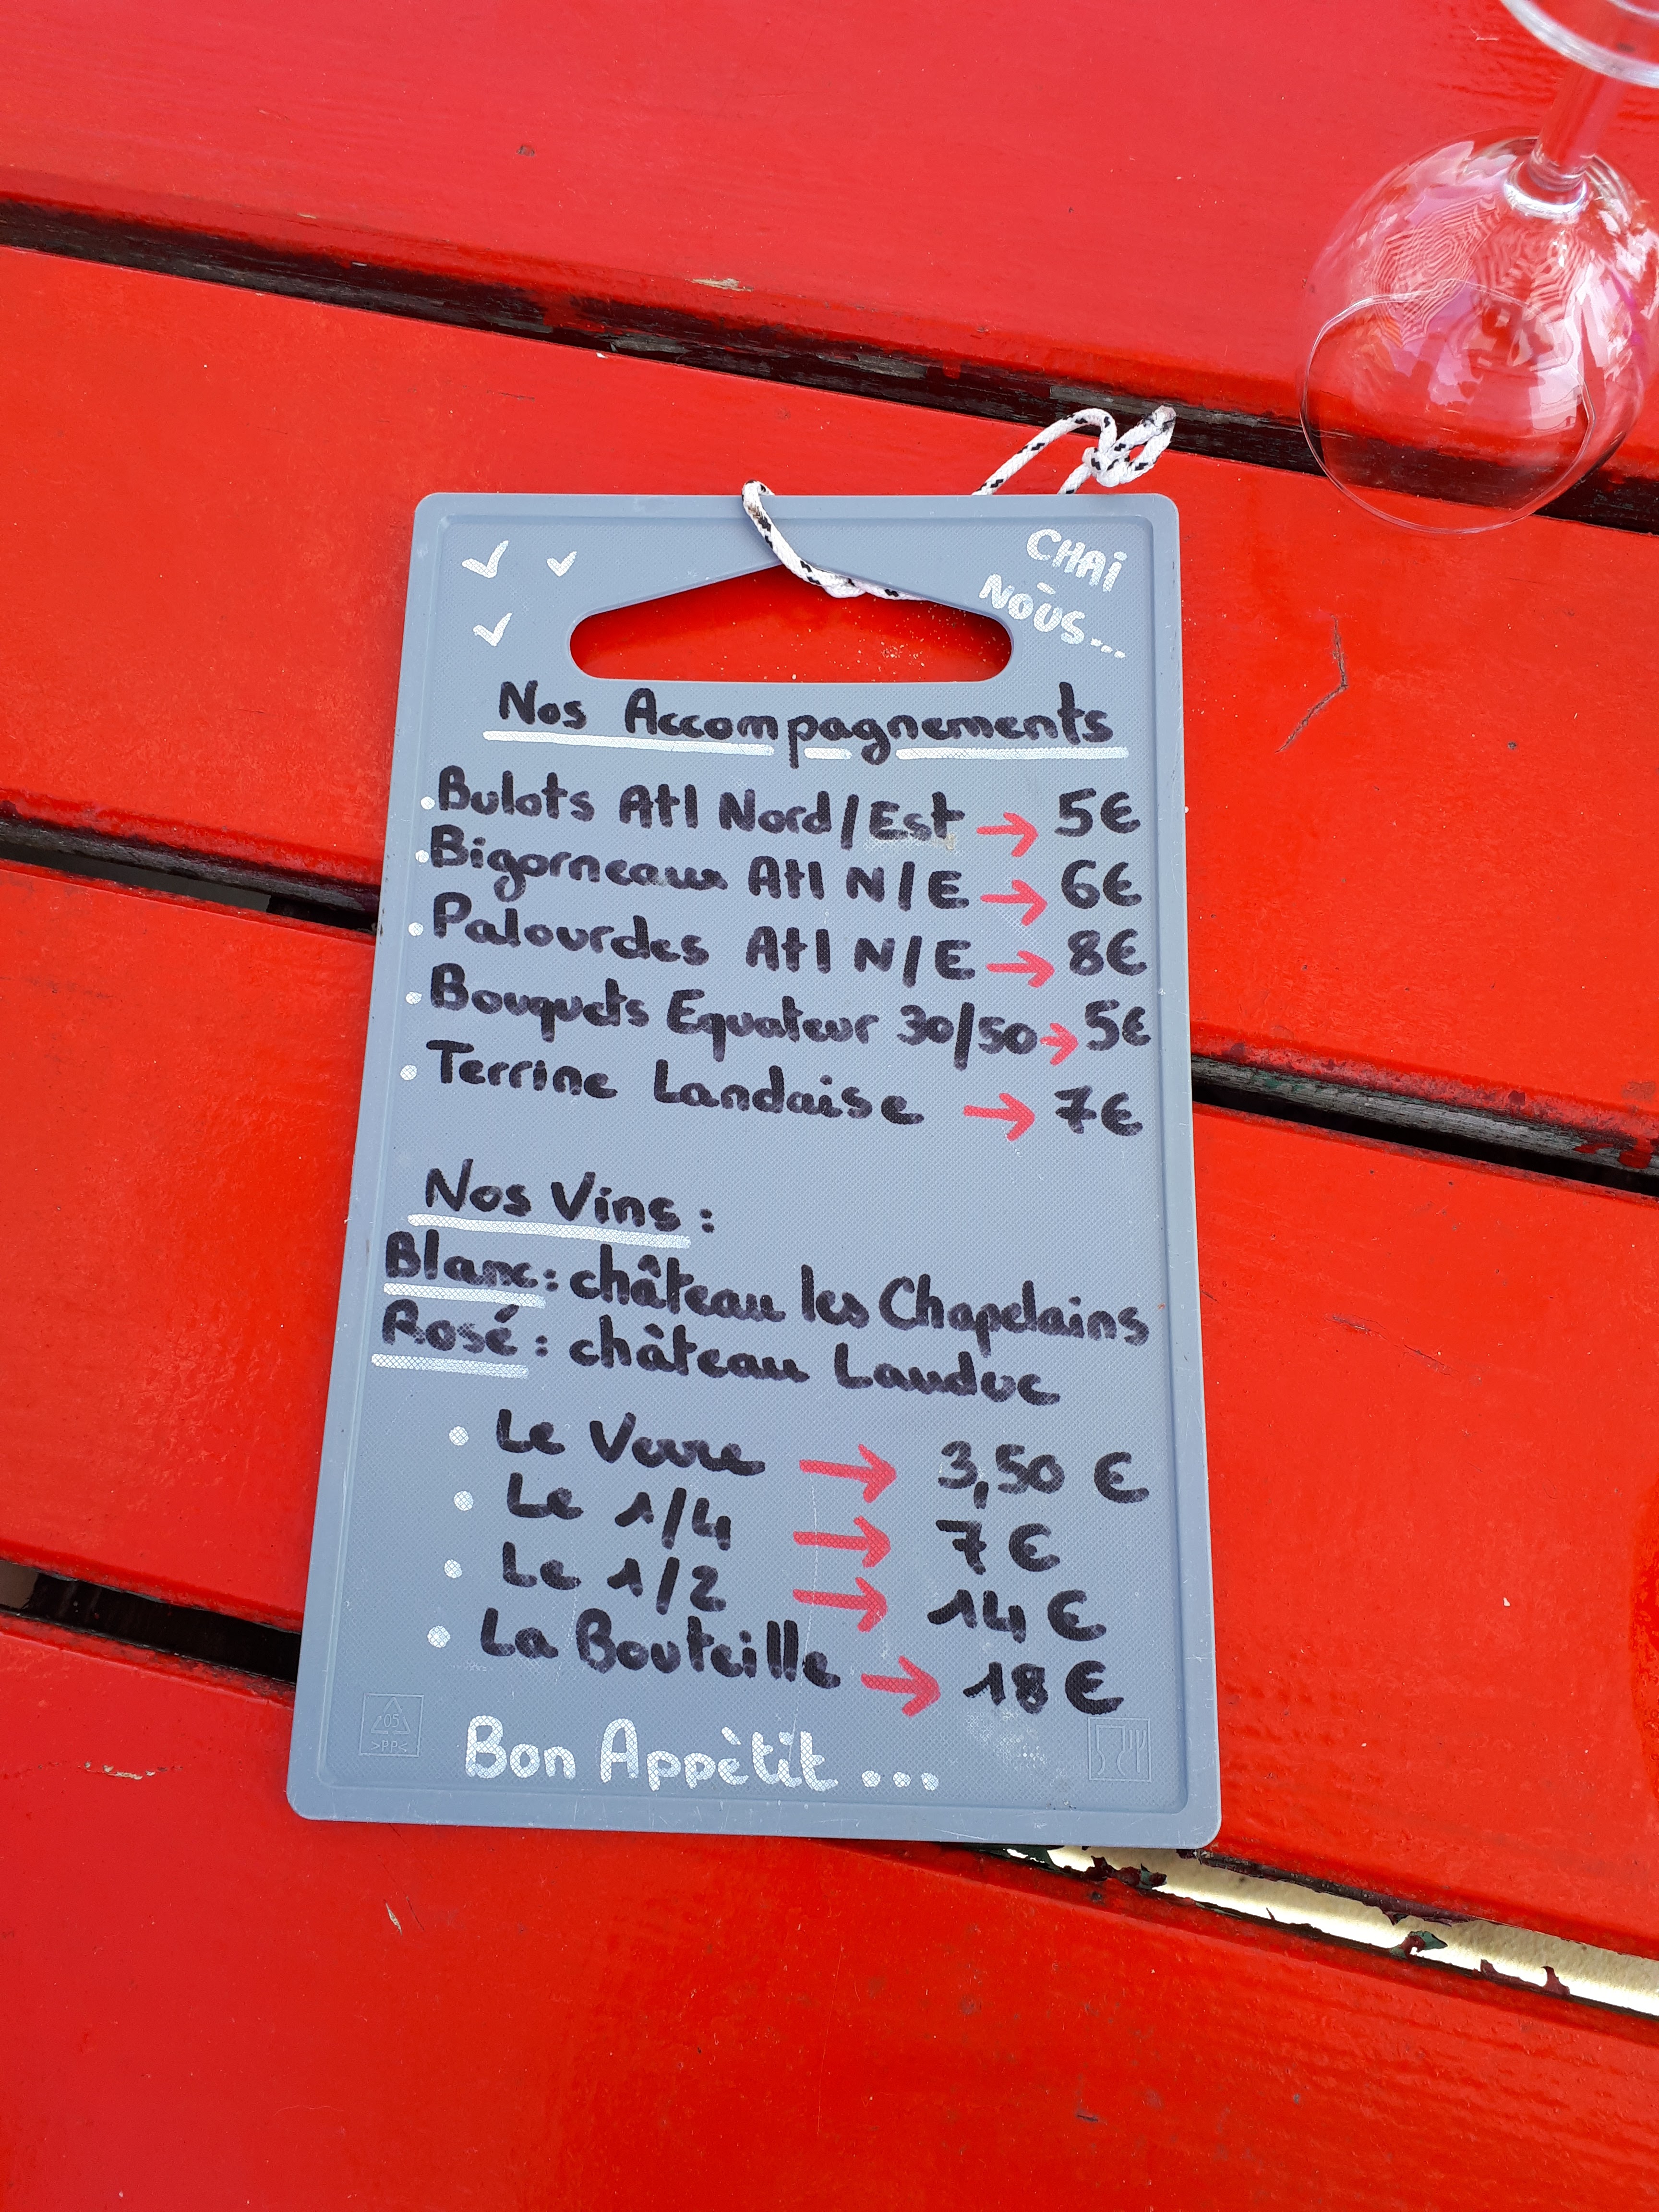 CHAi
NOUS...
Nos Accompagnements
Bulots Atl Nord/Est → 5€
Bigorneaux Atl N/E → 6€
Palourdes Atl N/E → 8€
Bouquets Equateur 30/50 → 5€
Terrine Landaise → 7€
Nos Vins :
Blanc : château les Chapelains
Rosé : château Lauduc
Le Verre → 3,50 €
Le 1/4 → 7 €
Le 1/2 → 14 €
La Bouteille → 18 €
05
>PP<
Bon Appètit ...